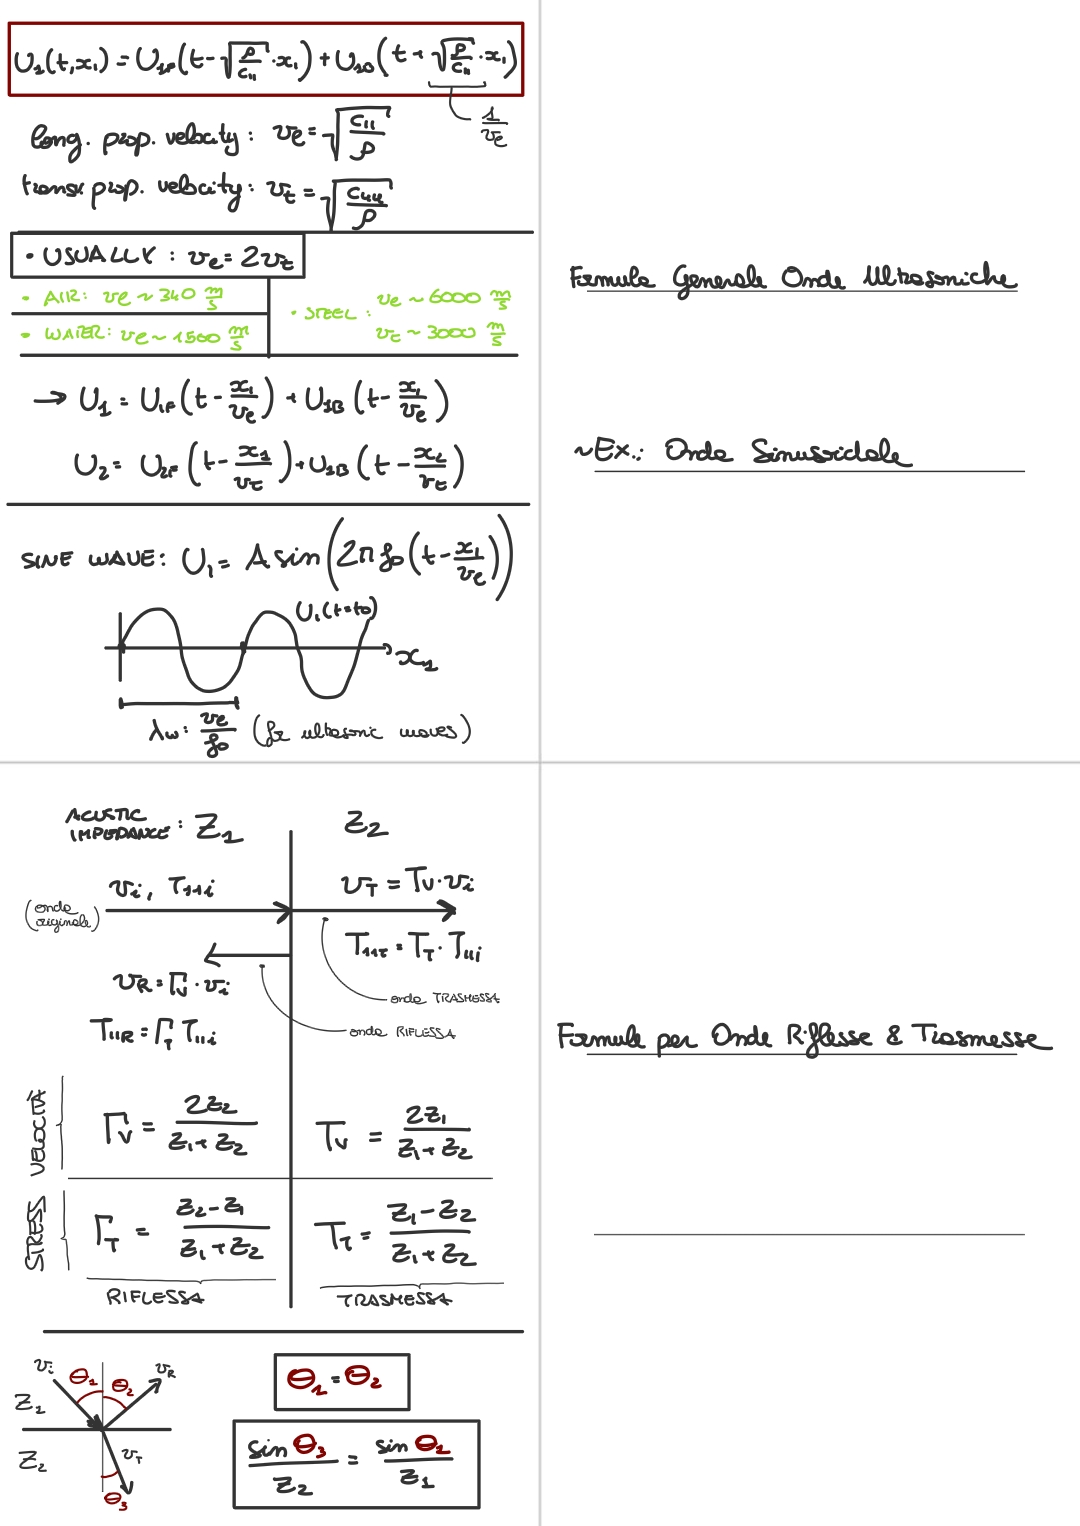 U₁(t,x₁) = U₁F(t-√(ρ/c₁₁)·x₁) + U₁B(t+√(ρ/c₁₁)·x₁)
1/ve
long. prop. velocity: ve = √(c₁₁/ρ)
transv. prop. velocity: vt = √(c₄₄/ρ)
• USUALLY : ve = 2vt
• AIR: ve ~ 340 m/s
• WATER: ve ~ 1500 m/s
• STEEL : ve ~ 6000 m/s
vt ~ 3000 m/s
→ U₁ = U₁F(t-x₁/ve) + U₁B(t-x₁/ve)
U₂ = U₂F(t-x₁/vt) + U₁B(t-x₁/vt)
SINE WAVE: U₁ = A sin(2π f₀(t-x₁/ve))
U₁(t=t₀)
x₁
λw: ve/f₀ (for ultrasonic waves)
Formula Generale Onde Ultrasoniche
~Ex.: Onda Sinusoidale
ACUSTIC
IMPEDANCE : Z₁
Z₂
vi, T₁₁i
vT = Tv·vi
(onda
originale)
T₁₁T = TT·T₁₁i
vR = Γv·vi
onda TRASMESSA
T₁₁R = ΓT T₁₁i
onda RIFLESSA
VELOCITÀ
Γv = 2Z₂/(Z₁+Z₂)
Tv = 2Z₁/(Z₁+Z₂)
STRESS
ΓT = (Z₂-Z₁)/(Z₁+Z₂)
TT = (Z₁-Z₂)/(Z₁+Z₂)
RIFLESSA
TRASMESSA
Formule per Onde Riflesse & Trasmesse
vi
θ₁
θ₂
vR
Z₁
Z₂
vT
θ₃
θ₁ = θ₂
sin θ₃/Z₂ = sin θ₁/Z₁